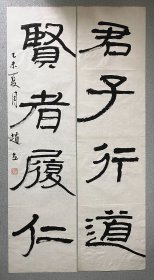 君子行道
賢者履仁
乙未夏月
趙